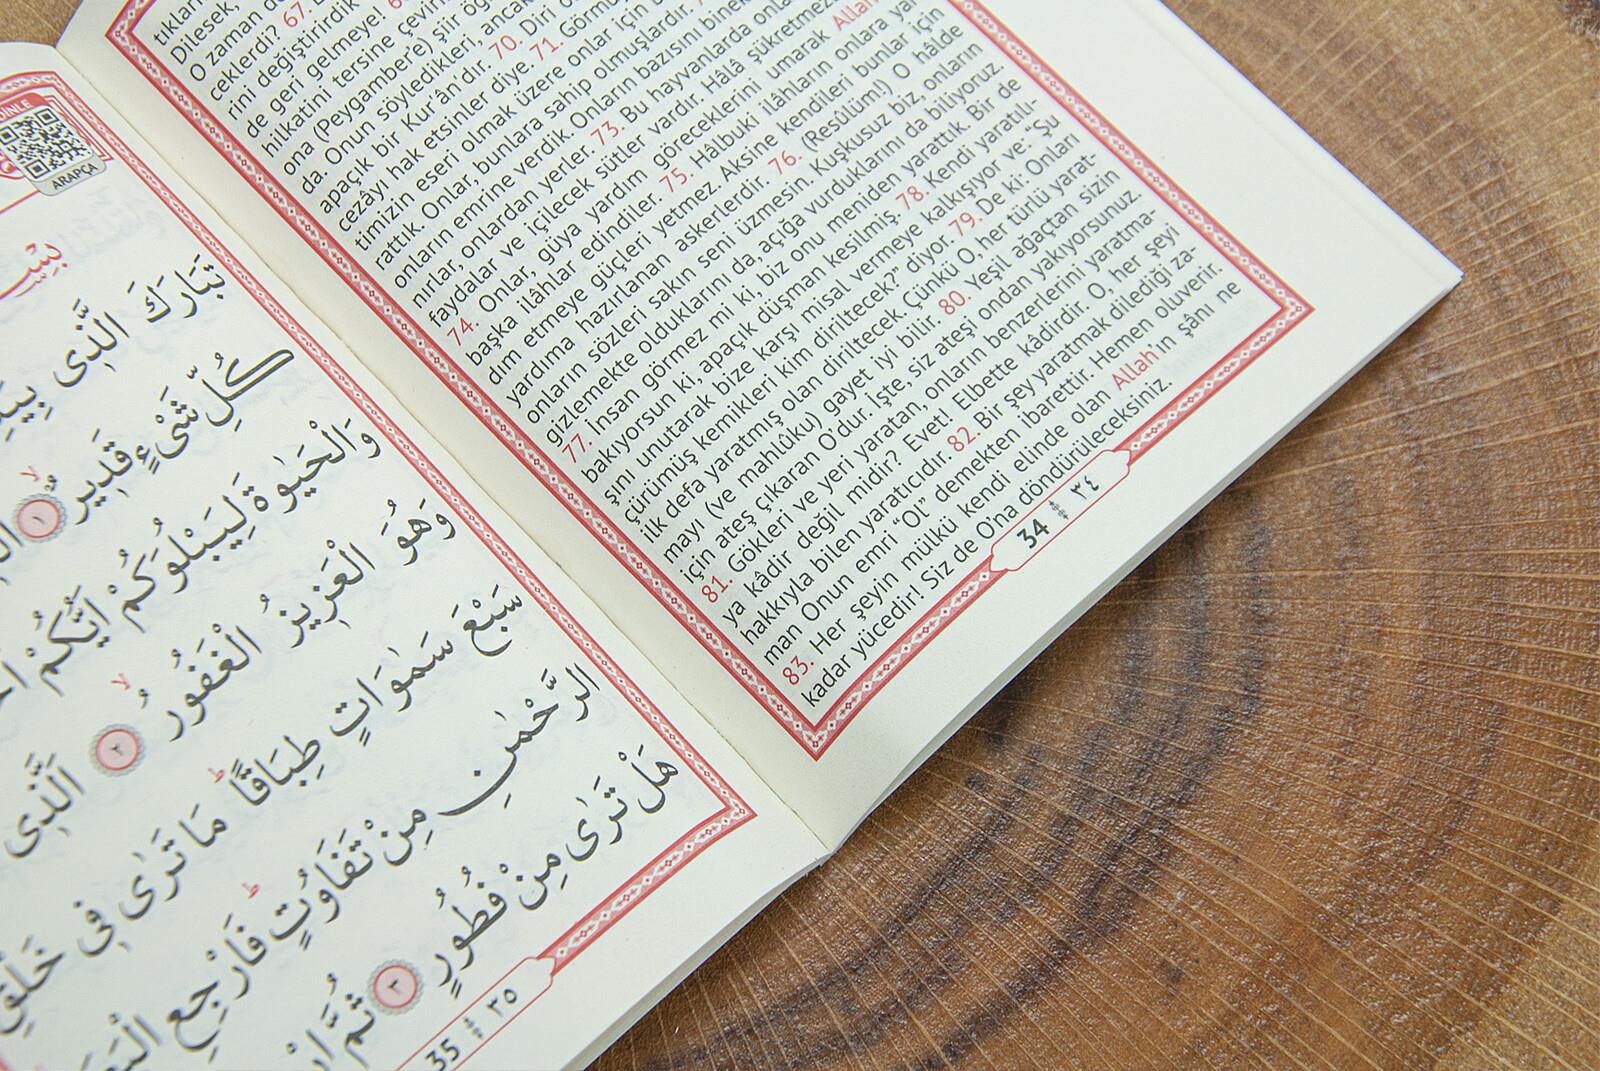 tıkların
Dilesek,
O zaman
ceklerdi? 67.
rini değiştirdik
de geri gelmeye!
hilkatini tersine
ona (Peygambere) şiir
da. Onun söyledikleri, ancak
apaçık bir Kur'ân'dır. 70. Diri
cezâyı hak etsinler diye. 71.
timizin eseri olmak üzere onlar için
rattık. Onlar, bunlara sahip olmuşlardır.
onların emrine verdik. Onların bazısını
nırlar, onlardan yerler. 73. Bu hayvanlarda
faydalar ve içilecek sütler vardır. Hâlâ
74. Onlar, güya yardım göreceklerini umarak Allah
başka ilâhlar edindiler. 75. Hâlbuki ilâhların onlara
dım etmeye güçleri yetmez. Aksine kendileri bunlar için
yardıma hazırlanan askerlerdir. 76. (Resûlüm!) O hâlde
onların sözleri sakın seni üzmesin. Kuşkusuz biz, onların
gizlemekte olduklarını da, açığa vurduklarını da biliyoruz
77. İnsan görmez mi ki, biz onu meniden yarattık. Bir de
bakıyorsun ki, apaçık düşman kesilmiş. 78. Kendi yaratılı-
şını unutarak bize karşı misal vermeye kalkışıyor ve: "Şu
çürümüş kemikleri kim diriltecek?" diyor. 79. De ki: Onları
ilk defa yaratmış olan diriltecek. Çünkü O, her türlü yarat-
mayı (ve mahlûku) gayet iyi bilir. 80. Yeşil ağaçtan sizin
için ateş çıkaran O'dur. İşte, siz ateşi ondan yakıyorsunuz.
81. Gökleri ve yeri yaratan, onların benzerlerini yaratma-
ya kâdir değil midir? Evet! Elbette kâdirdir. O, her şeyi
hakkıyla bilen yaratıcıdır. 82. Bir şey yaratmak dilediği za-
man Onun emri "Ol" demekten ibarettir. Hemen oluverir.
83. Her şeyin mülkü kendi elinde olan Allah'ın şânı ne
kadar yücedir! Siz de O'na döndürüleceksiniz.
34 ٣٤
ARAPÇA
تَبَارَكَ الَّذٖى
كُلِّ شَیْءٍ قَدٖيرٌ ١
وَالْحَيٰوةَ لِيَبْلُوَكُمْ اَيُّكُمْ
وَهُوَ الْعَزٖيزُ الْغَفُورُ ٢ اَلَّذٖى
سَبْعَ سَمٰوَاتٍ طِبَاقًا مَا تَرٰى فٖى خَلْقِ
الرَّحْمٰنِ مِنْ تَفَاوُتٍ فَارْجِعِ
هَلْ تَرٰى مِنْ فُطُورٍ ٣ ثُمَّ
35 ٣٥